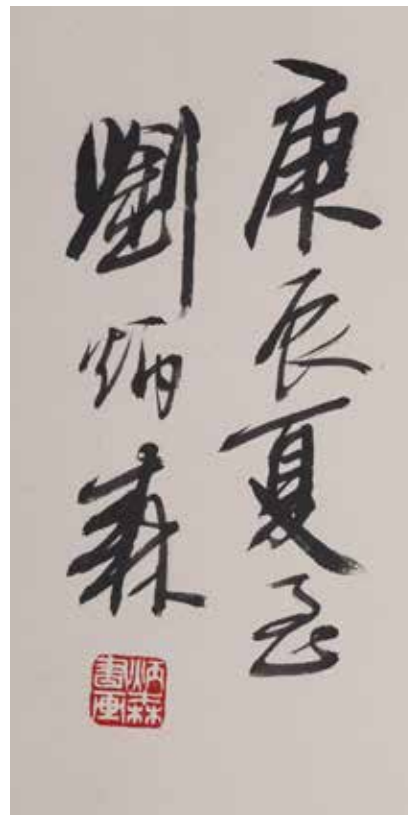 庚辰夏至
劉炳森
炳森
書画